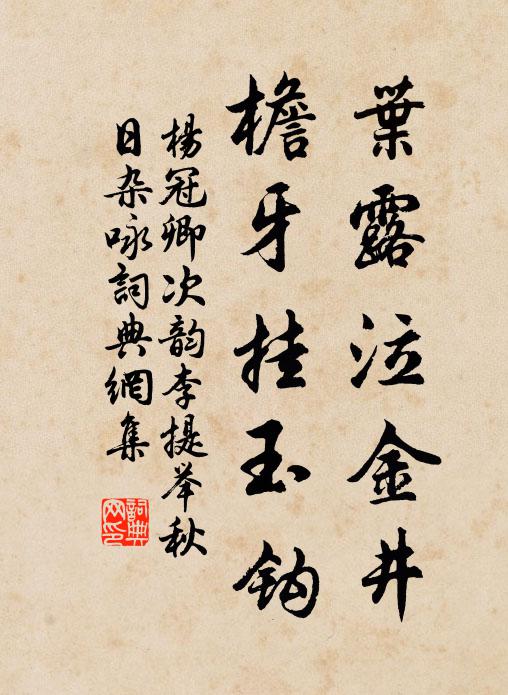 葉露泣金井
檐牙挂玉鈎
楊冠卿次韵李提举秋
日杂咏詞典網集
詞典网印